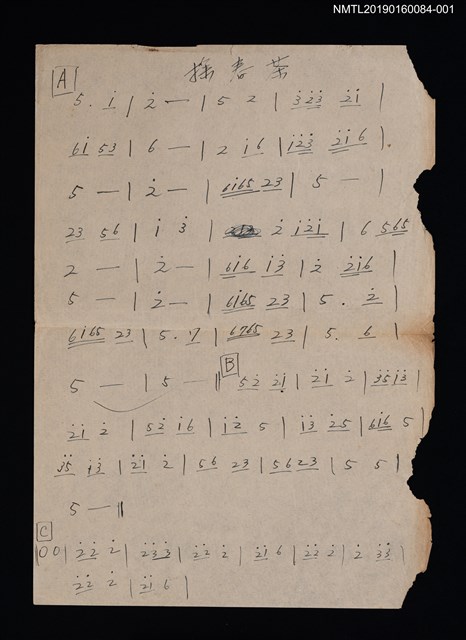 NMTL20190160084-001
採春茶
A
5. i̇ | 2̇ — | 5 2 | 3̇2̇3̇ 2̇i̇ |
6i̇ 53 | 6 — | 2 i̇6 | i̇2̇3̇ 2̇i̇6 |
5 — | 2̇ — | 6i̇65 23 | 5 — |
23 56 | i̇ 3̇ | 2̇ i̇2̇i̇ | 6 565
2 — | 2̇ — | 6i̇6 i̇3̇ | 2̇ 2̇i̇6 |
5 — | 2̇ — | 6i̇65 23 | 5. 2̇ |
6i̇65 23 | 5. 7 | 6765 23 | 5. 6 |
5 — | 5 — ‖ B 52̇ 2̇i̇ | 2̇i̇ 2̇ | 3̇5i̇3̇ |
2̇i̇ 2̇ | 52̇ i̇6 | i̇2̇ 5 | i̇3̇ 2̇5 | 6i̇6 5 |
3̇5 i̇3̇ | 2̇i̇ 2̇ | 56 23 | 5623 | 5 5 |
5 — ‖
C
| 00 | 2̇2̇ 2̇ | 2̇3̇3̇ | 2̇2̇ 2̇ | 2̇i̇ 6 | 2̇2̇ 2̇ | 2̇ 3̇3̇ |
2̇2̇ 2̇ | 2̇i̇ 6 |